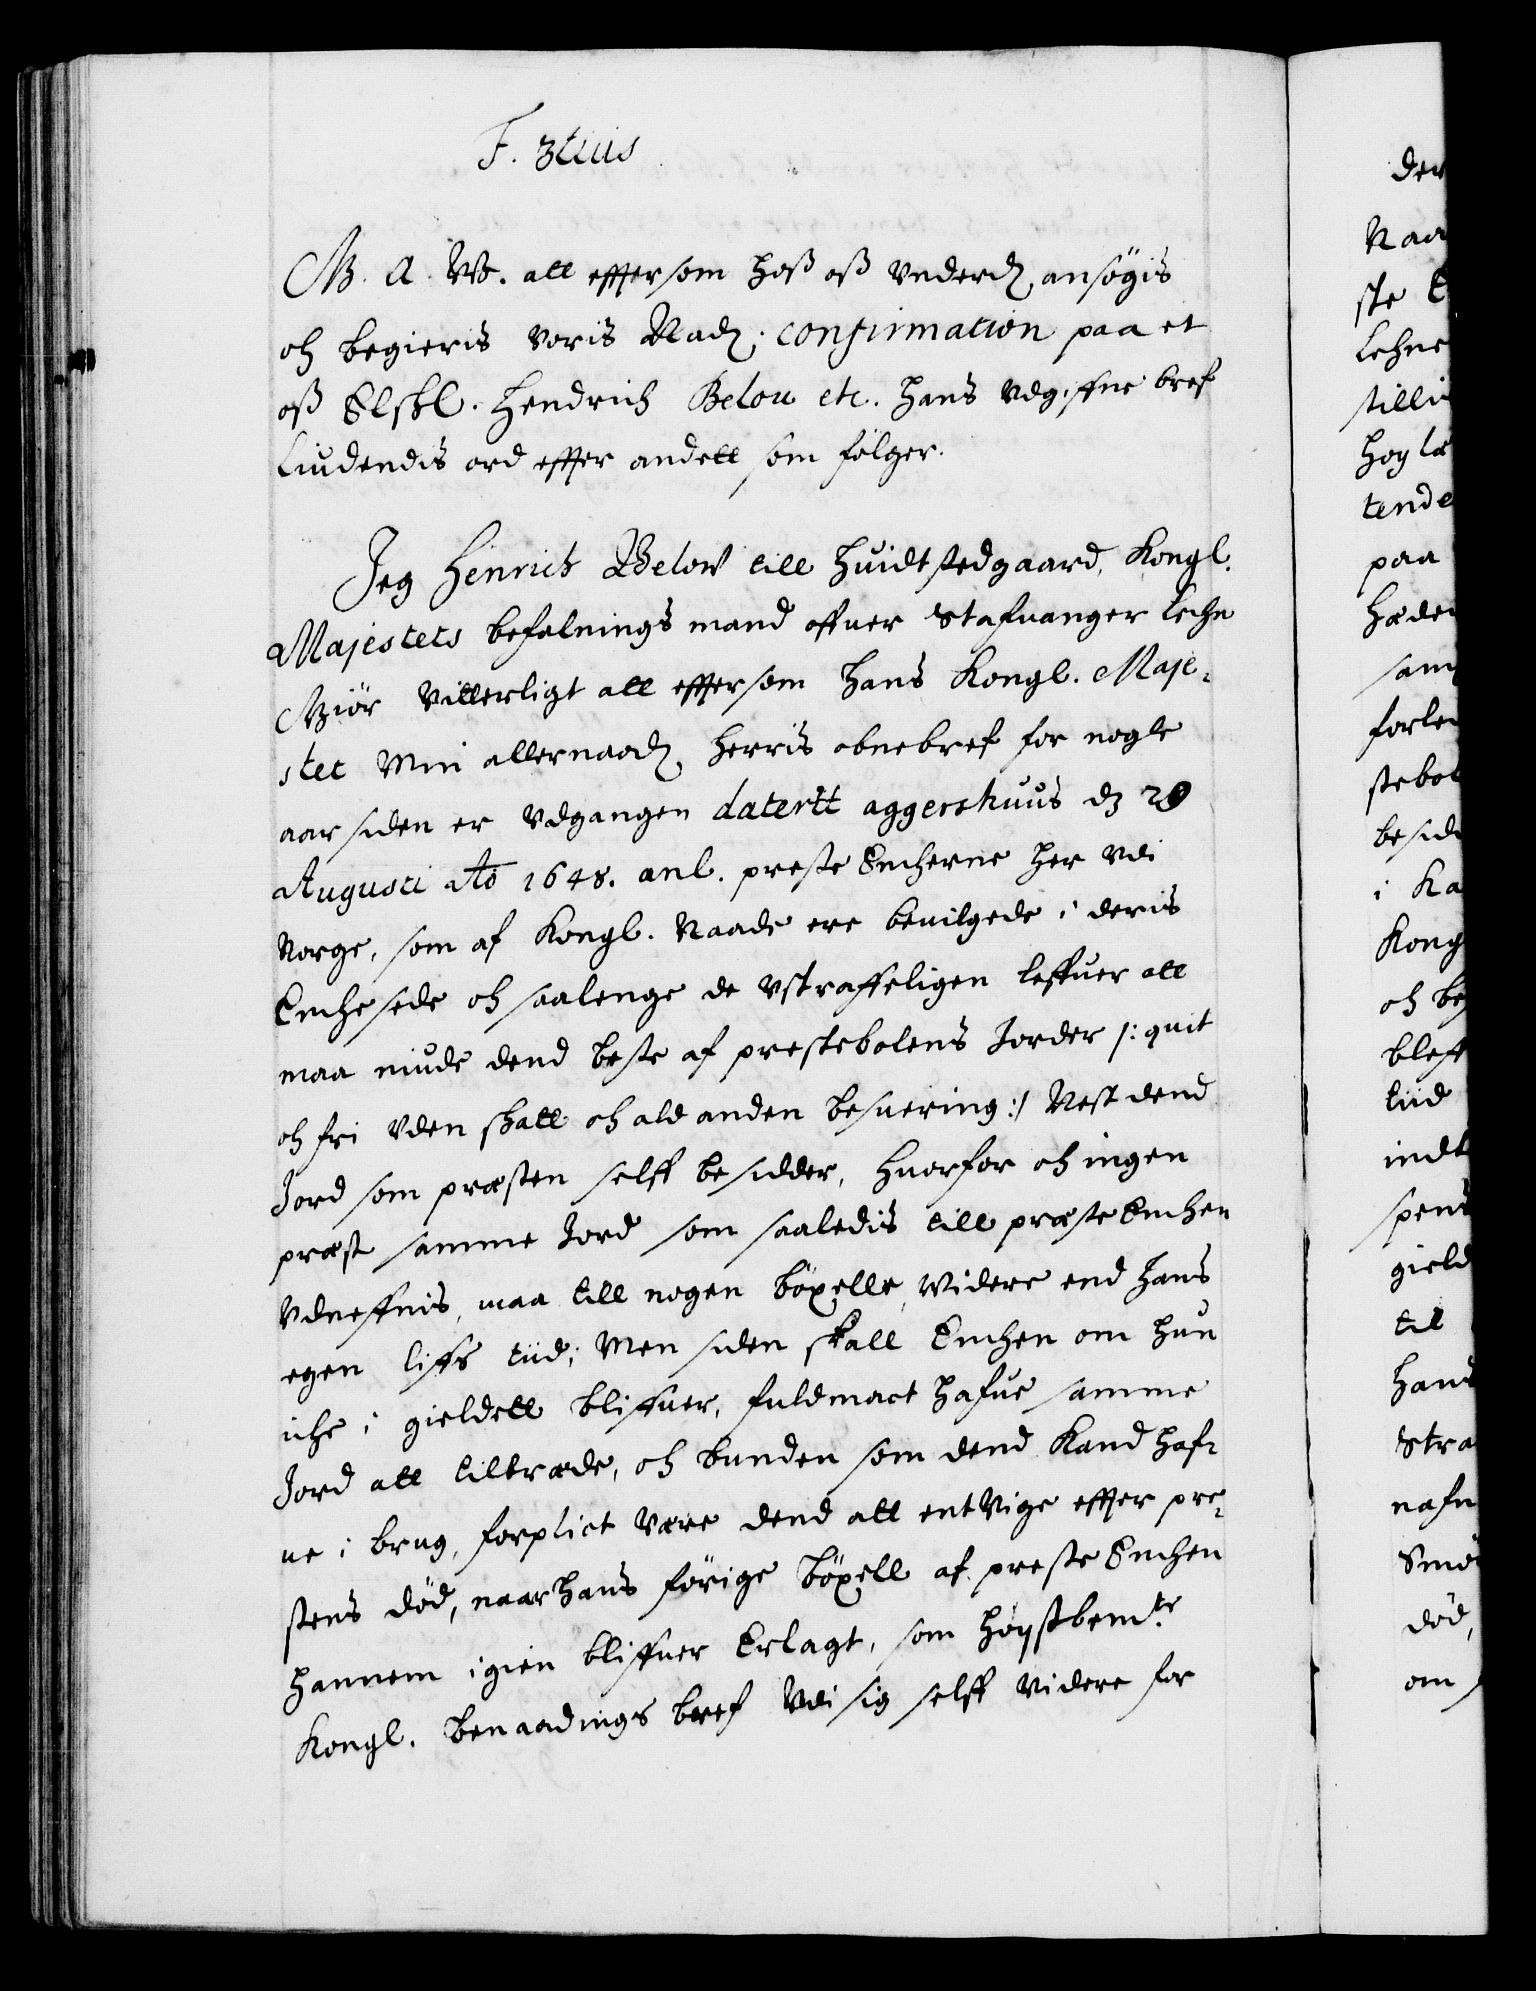 F. 3tius
G. A. W. att effter som hoß oß underd: ansögis
och begieris voris Naad: confirmation paa et
oß Elskel. Hendrich Belou etc. hans udgiffne bref
Liudendis ord effter andett som fölger.
Jeg Henrich Below till Huidtstedgaard, Kongl.
Majestets befalnings mand offuer Stafuanger Lehn
Giör Vitterligt att effter som Hans Kongl. Maje-
stet Min allernaad: Herris obnebref for nogle
aar siden er udgangen datertt aggershuus dz 29
Augusti Ao 1648. anl. preste Encherne her udi
Norge, som af Kongl. Naade ere beuilgede i deris
Enche sede och saalenge de ustraffeligen leffuer att
maa niude dend beste af prestebolens Jorder /: quit
och fri uden skatt och ald anden besuering :/ Nest dend
Jord som præsten selff besidder, Huorfor och ingen
præst samme Jord som saaledis till præste Enchen
udneffnis, maa till nogen böxelle, Widere end hans
egen liffs tiid; Men siden skall Enchen om hun
iche i gieldett bliffuer, fuldmact hafue samme
Jord att tiltræde, och bunden som dend Kand haf-
ue i brug, forplict være dend att entvige effter pre-
stens död, naar hans förige böxell af preste Enchen
hannem igien bliffuer Erlagt, som höystbemte.
Kongl. Benaadings bref Udi sig selff Videre for
der
Naa
ste E
Lehne
stilli
hoy læ
tende
paa
hæder
sam
forle
stebol
besid
i Ka
Kong
och be
blef
tiid
indt
spens
gield
til
hans
Stra
nafn
Smö
död,
om